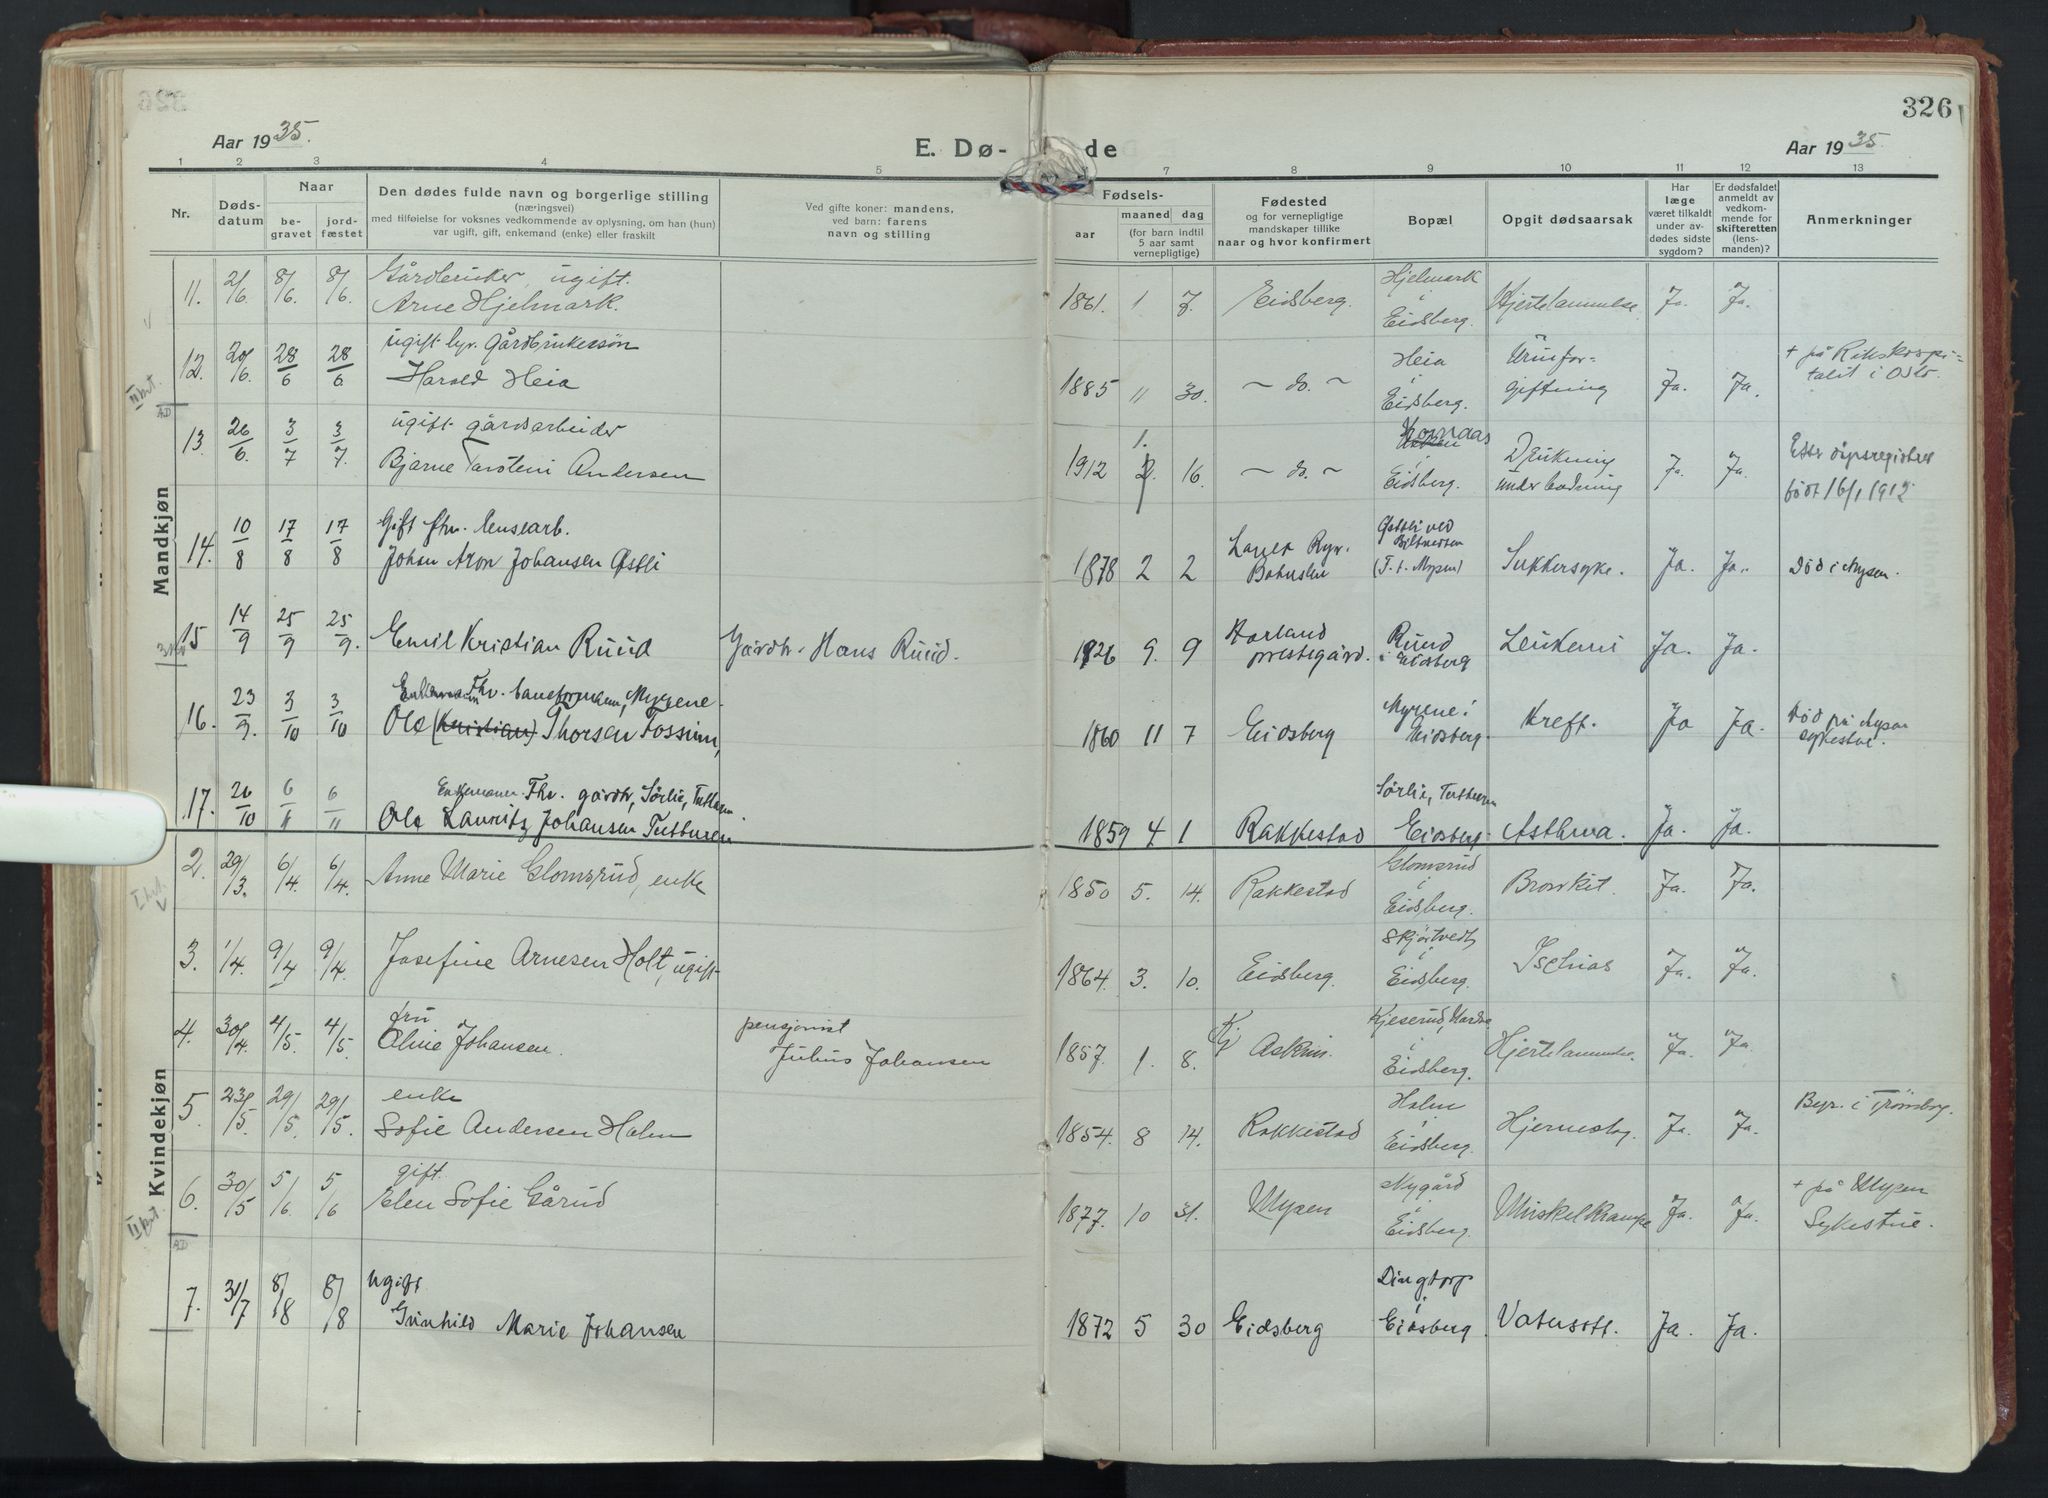 326
Aar 1935. E. Dø- de Aar 1935.
1 2 3 4 5 7 8 9 10 11 12 13
Nr.
Døds-
datum
Naar
be-
gravet
jord-
fæstet
Den dødes fulde navn og borgerlige stilling
(næringsvei)
med tilføielse for voksnes vedkommende av oplysning, om han (hun)
var ugift, gift, enkemand (enke) eller fraskilt
Ved gifte koner: mandens,
ved barn: farens
navn og stilling
Fødsels-
aar
maaned dag
(for barn indtil
5 aar samt
vernepligtige)
Fødested
og for vernepligtige
mandskaper tillike
naar og hvor konfirmert
Bopæl
Opgit dødsaarsak
Har
læge
været tilkaldt
under av-
dødes sidste
sygdom?
Er dødsfaldet
anmeldt av
vedkom-
mende for
skifteretten
(lens-
manden)?
Anmerkninger
Mandkjøn
11. 2/6. 8/6. 8/6. Gårdbruker, ugift.
Arne Hjelmark.
1861. 1 7. Eidsberg. Hjelmark
i
Eidsberg.
Hjertelammelse. Ja. Ja.
12. 20/6. 28/6 28/6 ugift byr. gårdbrukersøn
Harald Heia
1885 11 30. - do. - Heia
i
Eidsberg.
Urinfor-
giftning
Ja. Ja.
+ på Rikshospi-
talet i Oslo.
13 26/6. 3/7 3/7. ugift gårdsarbeider
Bjarne Tarstein Andersen
1912 1. 2. 16. - do. - Kornaas
i
Eidsberg.
Drukning
under badning
Ja. Ja.
Efter dåpsregistret
født 16/1 1912
14. 10/8 17/8 17/8 Gift fhv. lensearb.
Johan Aron Johansen Østli
1878 2 2
Bohuslen
Østli ved
(T. t. Mysen)
Sukkersyke. Ja. Ja. Død i Mysen.
15 14/9 25/9 25/9. Emil Kristian Ruud Gårdbr. Hans Ruud.
1926 9. 9 Harland
prestegård.
Ruud
i Eidsberg
Leukemi Ja. Ja.
16. 23/9. 3/10 3/10 Enkemann Fhv. baneformann, Myrene
Ole (Kristian) Thorsen Fossum,
1860 11 7 Eidsberg Myrene i
Eidsberg.
Kreft. Ja Ja.
Død på Mysen
sykestue.
17. 26/10 6/11 6/11 Enkemann. Fhv. gårdbr, Sørlie, Tutturen
Ole Lauritz Johansen Tutturen
1859 4 1 Rakkestad Sørlie, Tutturen
Eidsberg. Asthma. Ja. Ja.
Kvindekjøn
2. 29/3. 6/4. 6/4. Anne Marie Glomsrud, enke
1850 5. 14. Rakkestad Glomsrud
i
Eidsberg.
Bronkit. Ja. Ja.
3. 1/4. 9/4 9/4. Josefine Arnesen Holt, ugift
1864. 3. 10. Eidsberg. Skjørtvedt
i
Eidsberg.
Ischias Ja. Ja.
4. 30/4. 4/5. 4/5. fru
Oline Johansen.
pensjonist
Julius Johansen
1857. 1. 8. Askim. Kjeserud,
i
Eidsberg.
Hjertelammelse. Ja. Ja.
5. 23/5. 29/5. 29/5. enke
Sofie Andersen Holm
1854. 8 14. Rakkestad Holm
i
Eidsberg.
Hjerneslag. Ja. Ja. Begr. i Trømborg.
6. 30/5 5/6. 5/6 gift
Elen Sofie Gårud
1877. 10 31. Mysen Nygård
i
Eidsberg.
Muskelkrampe Ja. Ja.
+ på Mysen
Sykestue.
7. 31/7 8/8 8/8 Ugift
Gunhild Marie Johansen
1872 5 30 Eidsberg Dingtorp
i
Eidsberg
Vatersott. Ja. Ja.